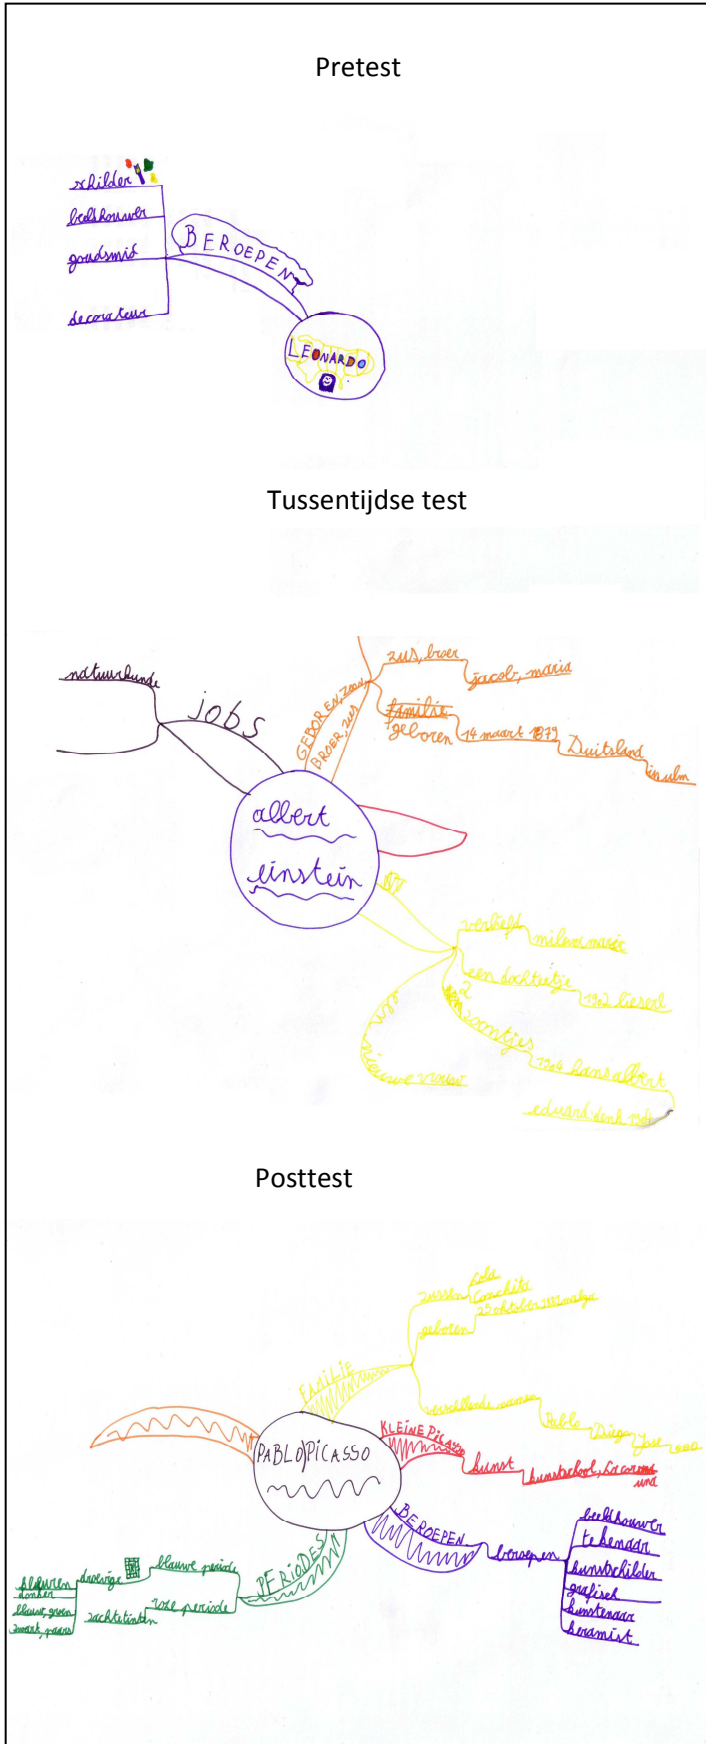 Pretest
schilder
beeldhouwer
goudsmid
decorateur
BEROEPEN
LEONARDO
Tussentijdse test
natuurkunde
jobs
GEBOREN, ZOON,
BROER, ZUS
zus, broer
jacob, maria
familie
geboren
14 maart 1879
Duitsland
in ulm
albert
einstein
verliefd
een dochtertje
1902 lieserl
2
zoontjes
1904 hans albert
eduard
nieuwe vrouw
Posttest
FAMILIE
zussen
Lola
Conchita
geboren
25 oktober
verschillende namen
Pablo
Diego
Jose
PABLO PICASSO
KLEINE PICASSO
kunst
kunstschool,
BEROEPEN
beroepen
beeldhouwer
tekenaar
kunstschilder
grafisch
kunstenaar
keramist
PERIODES
blauwe periode
droevige
kleuren
donker
blauw, groen
zwart, paars
roze periode
zachte tinten